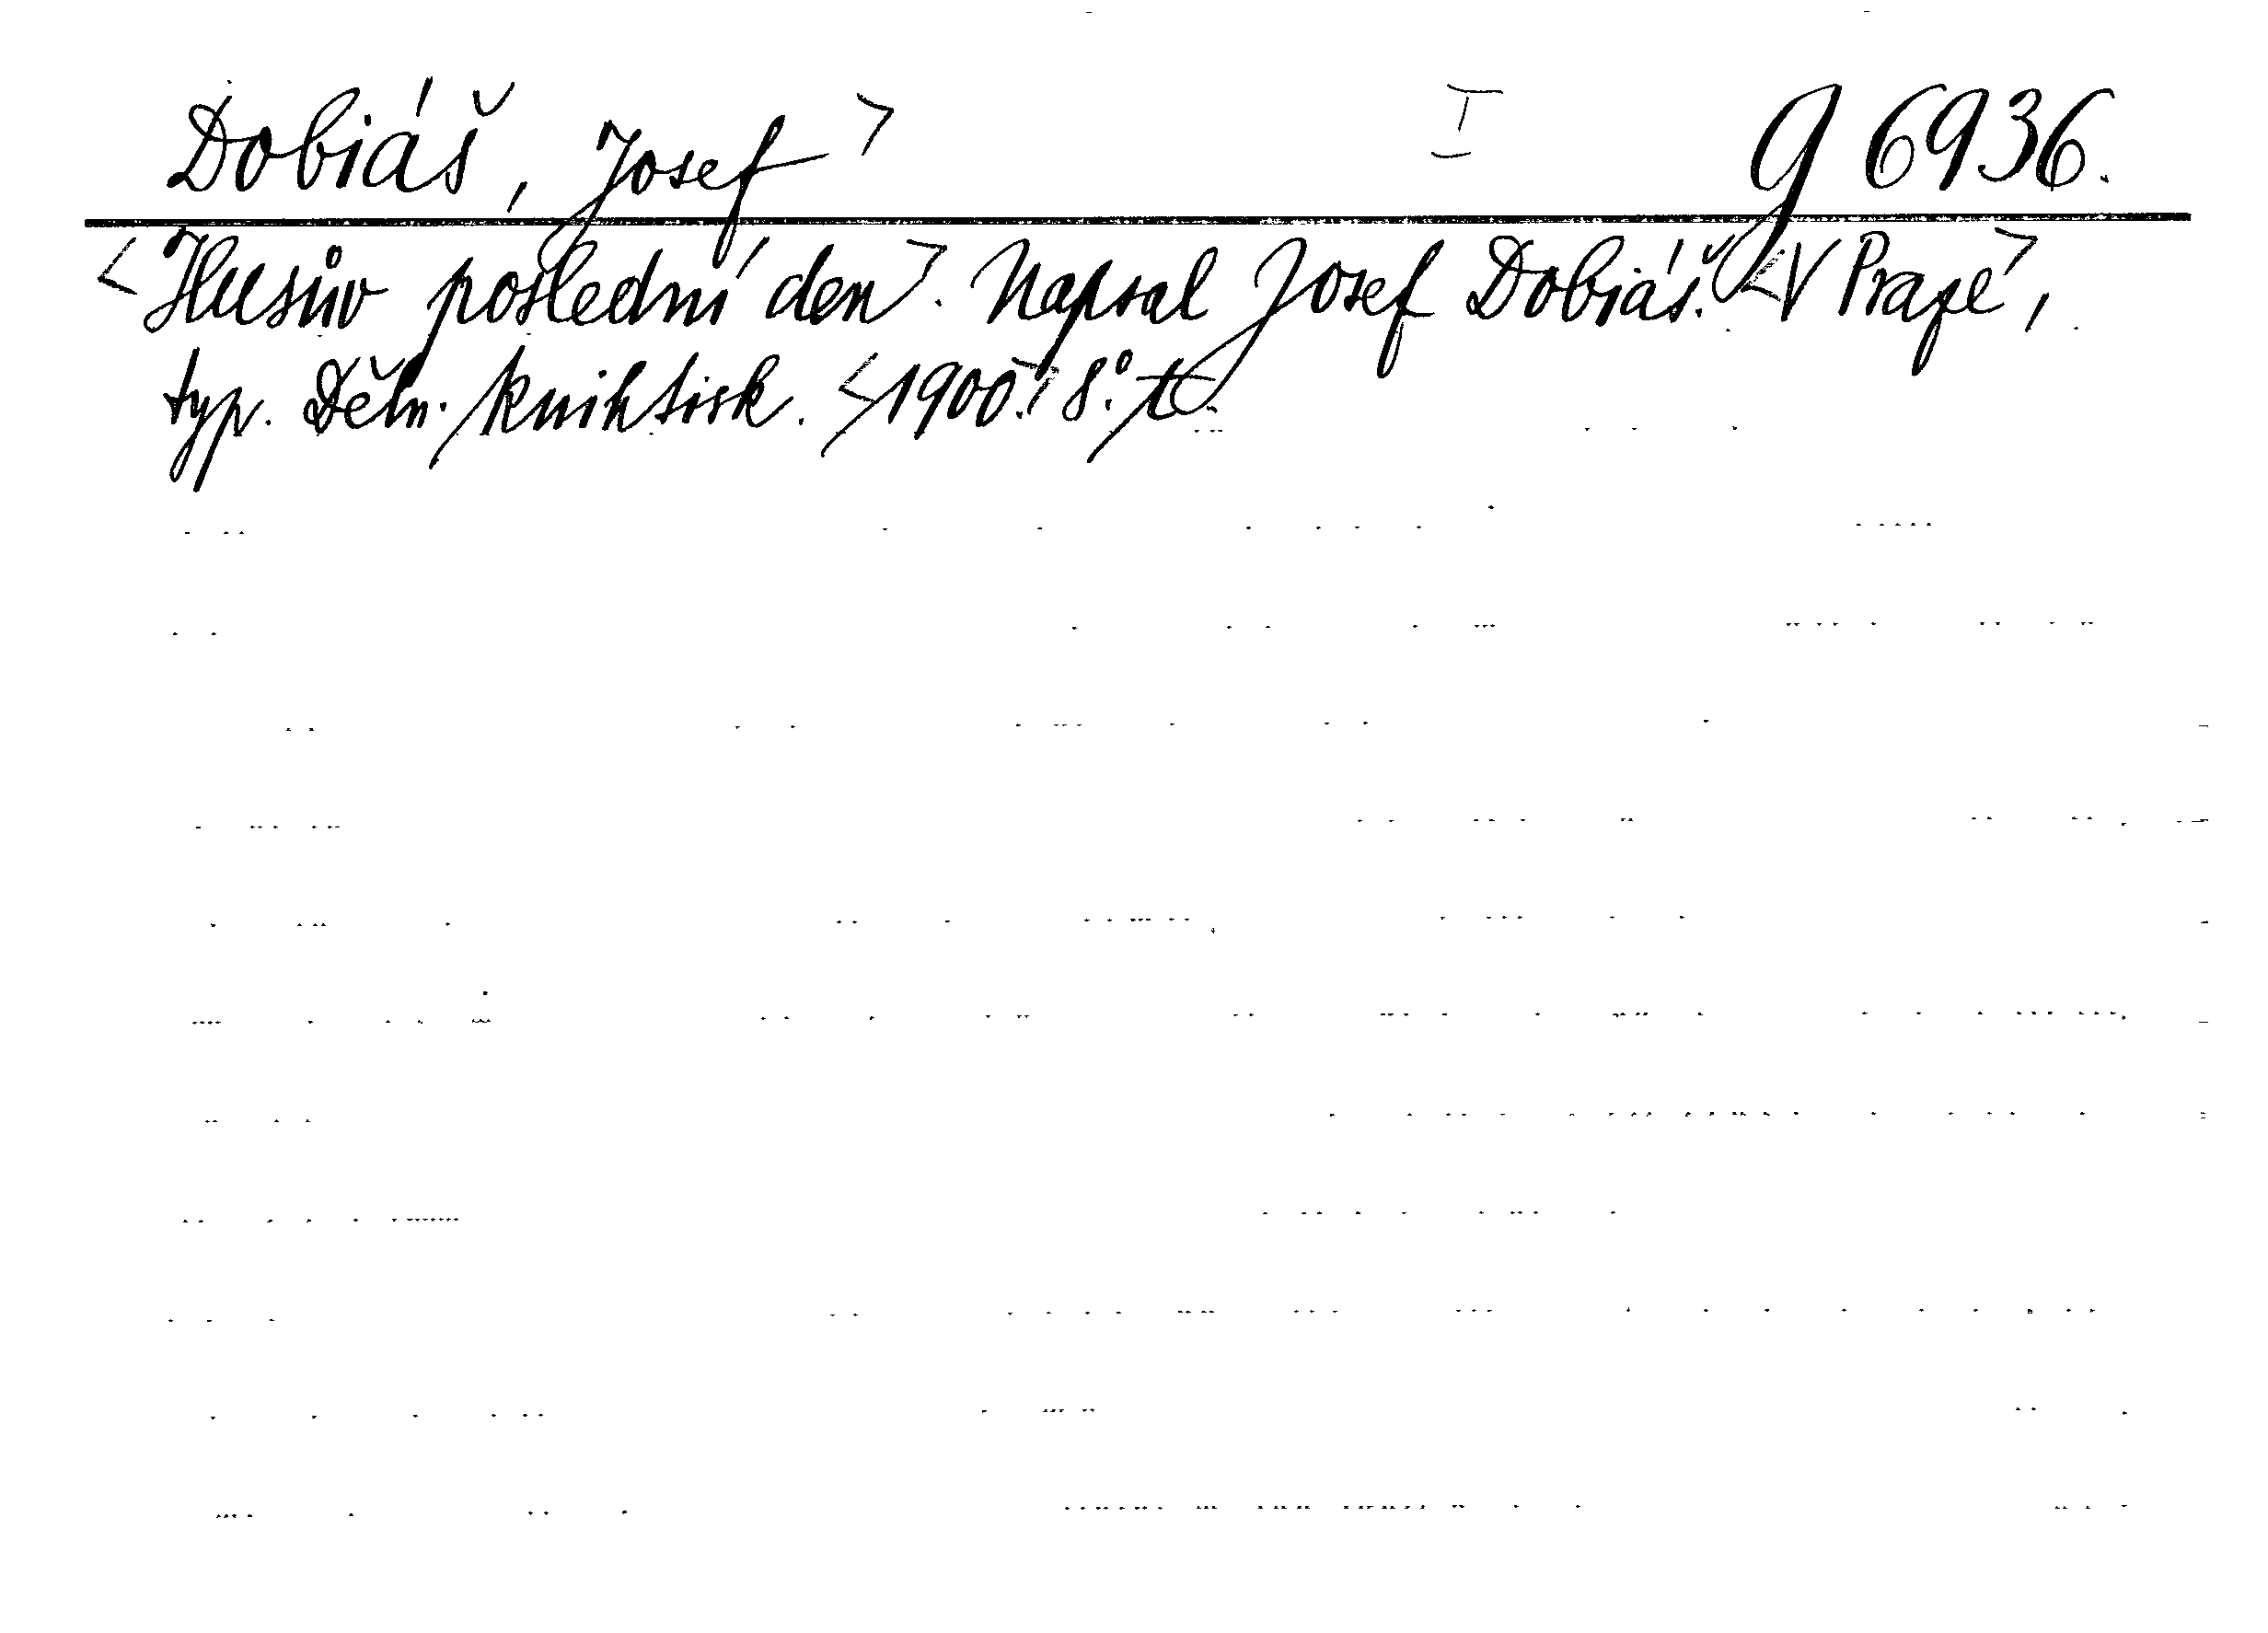 Dobiáš, Josef> I g 6936.
<Husův poslední den>. Napsal Josef Dobiáš. <V Praze>,
typ. Děln. knihtisk. <1900.> 8°.